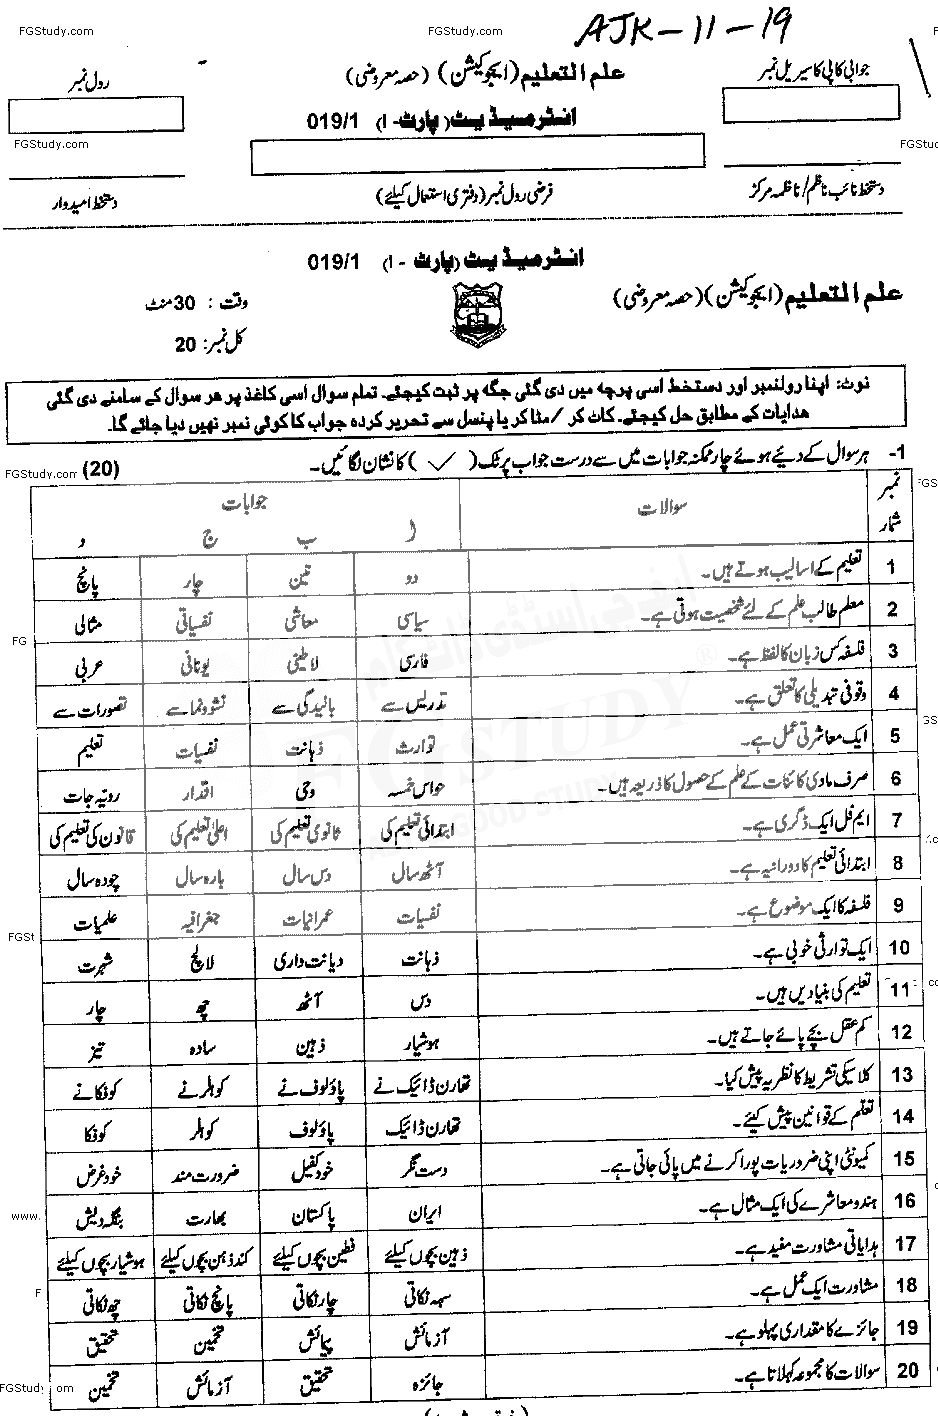 AJK-11-19
FGStudy.com FGStudy.com
جوابی کاپی کا سیریل نمبر علم التعلیم (ایجوکیشن) (حصہ معروضی) رول نمبر
انٹرمیڈیٹ (پارٹ - I) 019/1
FGStudy.com
دستخط نائب ناظم/ناظمہ مرکز فرضی رول نمبر (دفتری استعمال کیلئے) دستخط امیدوار
انٹرمیڈیٹ (پارٹ - I) 019/1
علم التعلیم (ایجوکیشن) (حصہ معروضی) وقت : 30 منٹ
کل نمبر: 20
نوٹ: اپنا رولنمبر اور دستخط اسی پرچہ میں دی گئی جگہ پر ثبت کیجئے۔ تمام سوال اسی کاغذ پر ہر سوال کے سامنے دی گئی
ہدایات کے مطابق حل کیجئے۔ کاٹ کر / مٹا کر یا پنسل سے تحریر کردہ جواب کا کوئی نمبر نہیں دیا جائے گا۔
1- ہر سوال کے دیئے ہوئے چار ممکنہ جوابات میں سے درست جواب پر ٹک (✓) کا نشان لگائیں۔ (20)
FGStudy.com
نمبر شمار سوالات جوابات
ا ب ج د
1 تعلیم کے اسالیب ہوتے ہیں۔ دو تین چار پانچ
2 معلم طالب علم کے لئے شخصیت ہوتی ہے۔ سیاسی معاشی نفسیاتی مثالی
3 فلسفہ کس زبان کا لفظ ہے۔ فارسی لاطینی یونانی عربی
4 وقوفی تبدیلی کا تعلق ہے۔ تدریس سے بالیدگی سے نشوونما سے تصورات سے
5 ایک معاشرتی عمل ہے۔ توارث ذہانت نفسیات تعلیم
6 صرف مادی کائنات کے علم کے حصول کا ذریعہ ہیں۔ حواس خمسہ وحی اقدار رویہ جات
7 ایم فل ایک ڈگری ہے۔ ابتدائی تعلیم کی ثانوی تعلیم کی اعلیٰ تعلیم کی قانون کی تعلیم کی
8 ابتدائی تعلیم کا دورانیہ ہے۔ آٹھ سال دس سال بارہ سال چودہ سال
9 فلسفہ کا ایک موضوع ہے۔ نفسیات عمرانیات جغرافیہ علمیات
10 ایک توارثی خوبی ہے۔ ذہانت دیانت داری لالچ شہرت
11 تعلیم کی بنیادیں ہیں۔ دس آٹھ چھ چار
12 کم عقل بچے پائے جاتے ہیں۔ ہوشیار ذہین سادہ تیز
13 کلاسیکی تشریط کا نظریہ پیش کیا۔ تھارن ڈائیک نے پاؤلوف نے کوہلر نے کوفکا نے
14 تعلم کے قوانین پیش کیئے۔ تھارن ڈائیک پاؤلوف کوہلر کوفکا
15 کمیونٹی اپنی ضروریات پورا کرنے میں پائی جاتی ہے۔ دست نگر خود کفیل ضرورت مند خود غرض
16 ہندو معاشرے کی ایک مثال ہے۔ ایران پاکستان بھارت بنگلہ دیش
17 ہدایاتی مشاورت مفید ہے۔ ذہین بچوں کیلئے فطین بچوں کیلئے کند ذہن بچوں کیلئے ہوشیار بچوں کیلئے
18 مشاورت ایک عمل ہے۔ سہ نکاتی چار نکاتی پانچ نکاتی چھ نکاتی
19 جائزے کا مقداری پہلو ہے۔ آزمائش پیمائش تخمین تحقیق
20 سوالات کا مجموعہ کہلاتا ہے۔ جائزہ تحقیق آزمائش تخمین